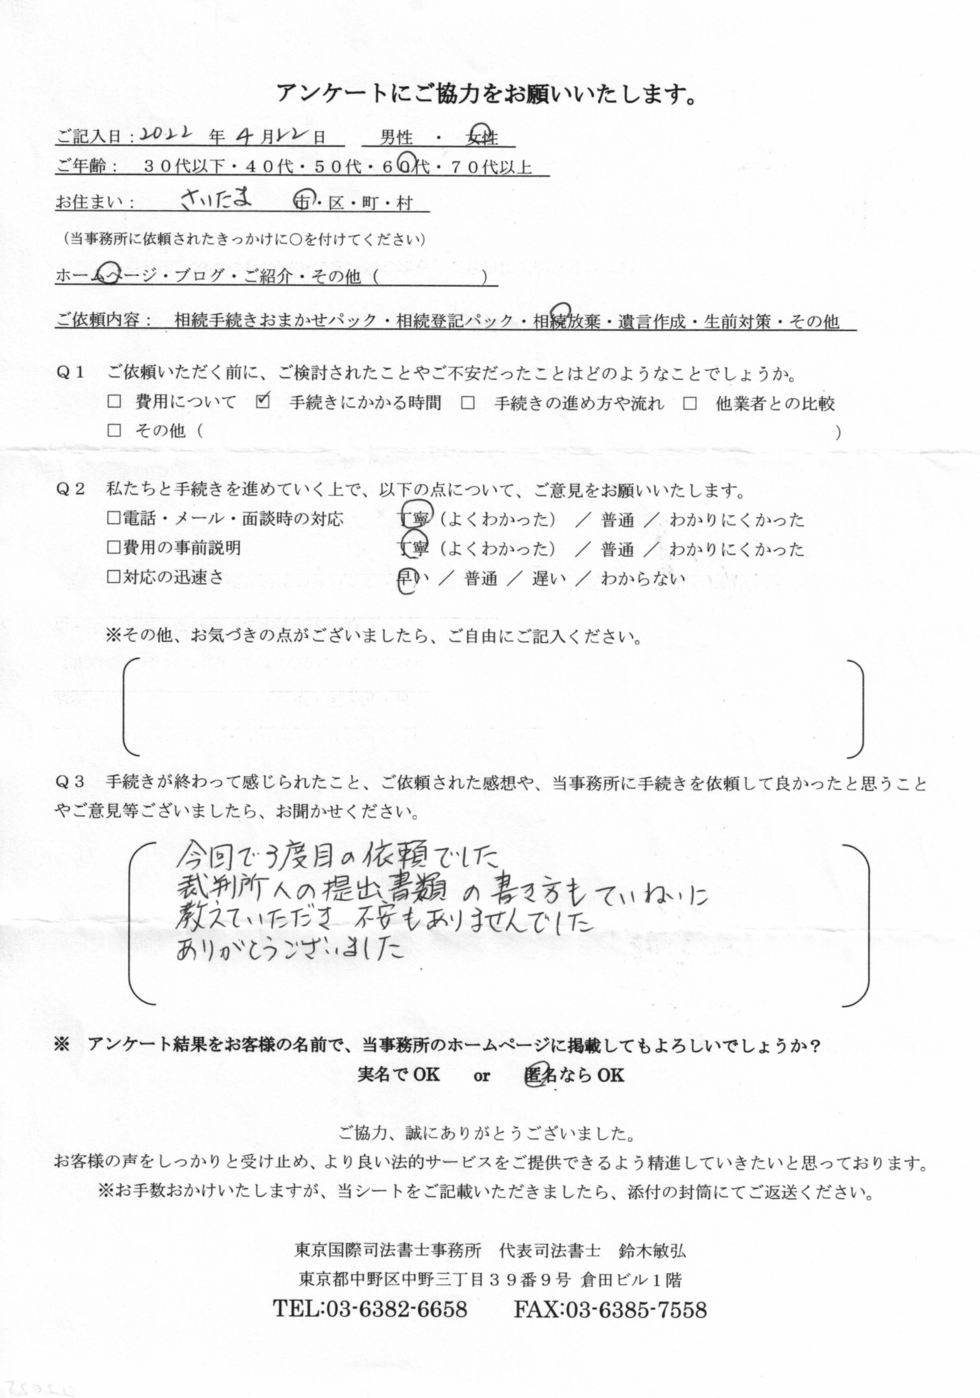 アンケートにご協力をお願いいたします。
ご記入日：2022 年 4 月 22 日　男性 ・ 女性
ご年齢： ３０代以下・４０代・５０代・６０代・７０代以上
お住まい： さいたま 市・区・町・村
（当事務所に依頼されたきっかけに〇を付けてください）
ホームページ・ブログ・ご紹介・その他（　　　　　　）
ご依頼内容： 相続手続きおまかせパック・相続登記パック・相続放棄・遺言作成・生前対策・その他
Ｑ１ ご依頼いただく前に、ご検討されたことやご不安だったことはどのようなことでしょうか。
□ 費用について ☑ 手続きにかかる時間 □ 手続きの進め方や流れ □ 他業者との比較
□ その他（　　　　　　）
Ｑ２ 私たちと手続きを進めていく上で、以下の点について、ご意見をお願いいたします。
□電話・メール・面談時の対応　丁寧（よくわかった） ／ 普通 ／ わかりにくかった
□費用の事前説明　丁寧（よくわかった） ／ 普通 ／ わかりにくかった
□対応の迅速さ　早い ／ 普通 ／ 遅い ／ わからない
※その他、お気づきの点がございましたら、ご自由にご記入ください。
Ｑ３ 手続きが終わって感じられたこと、ご依頼された感想や、当事務所に手続きを依頼して良かったと思うこと
やご意見等ございましたら、お聞かせください。
今回で3度目の依頼でした
裁判所への提出書類の書き方もていねいに
教えていただき 不安もありませんでした
ありがとうございました
※ アンケート結果をお客様の名前で、当事務所のホームページに掲載してもよろしいでしょうか？
実名でOK or 匿名ならOK
ご協力、誠にありがとうございました。
お客様の声をしっかりと受け止め、より良い法的サービスをご提供できるよう精進していきたいと思っております。
※お手数おかけいたしますが、当シートをご記載いただきましたら、添付の封筒にてご返送ください。
東京国際司法書士事務所　代表司法書士　鈴木敏弘
東京都中野区中野三丁目３９番９号 倉田ビル１階
TEL:03-6382-6658　FAX:03-6385-7558